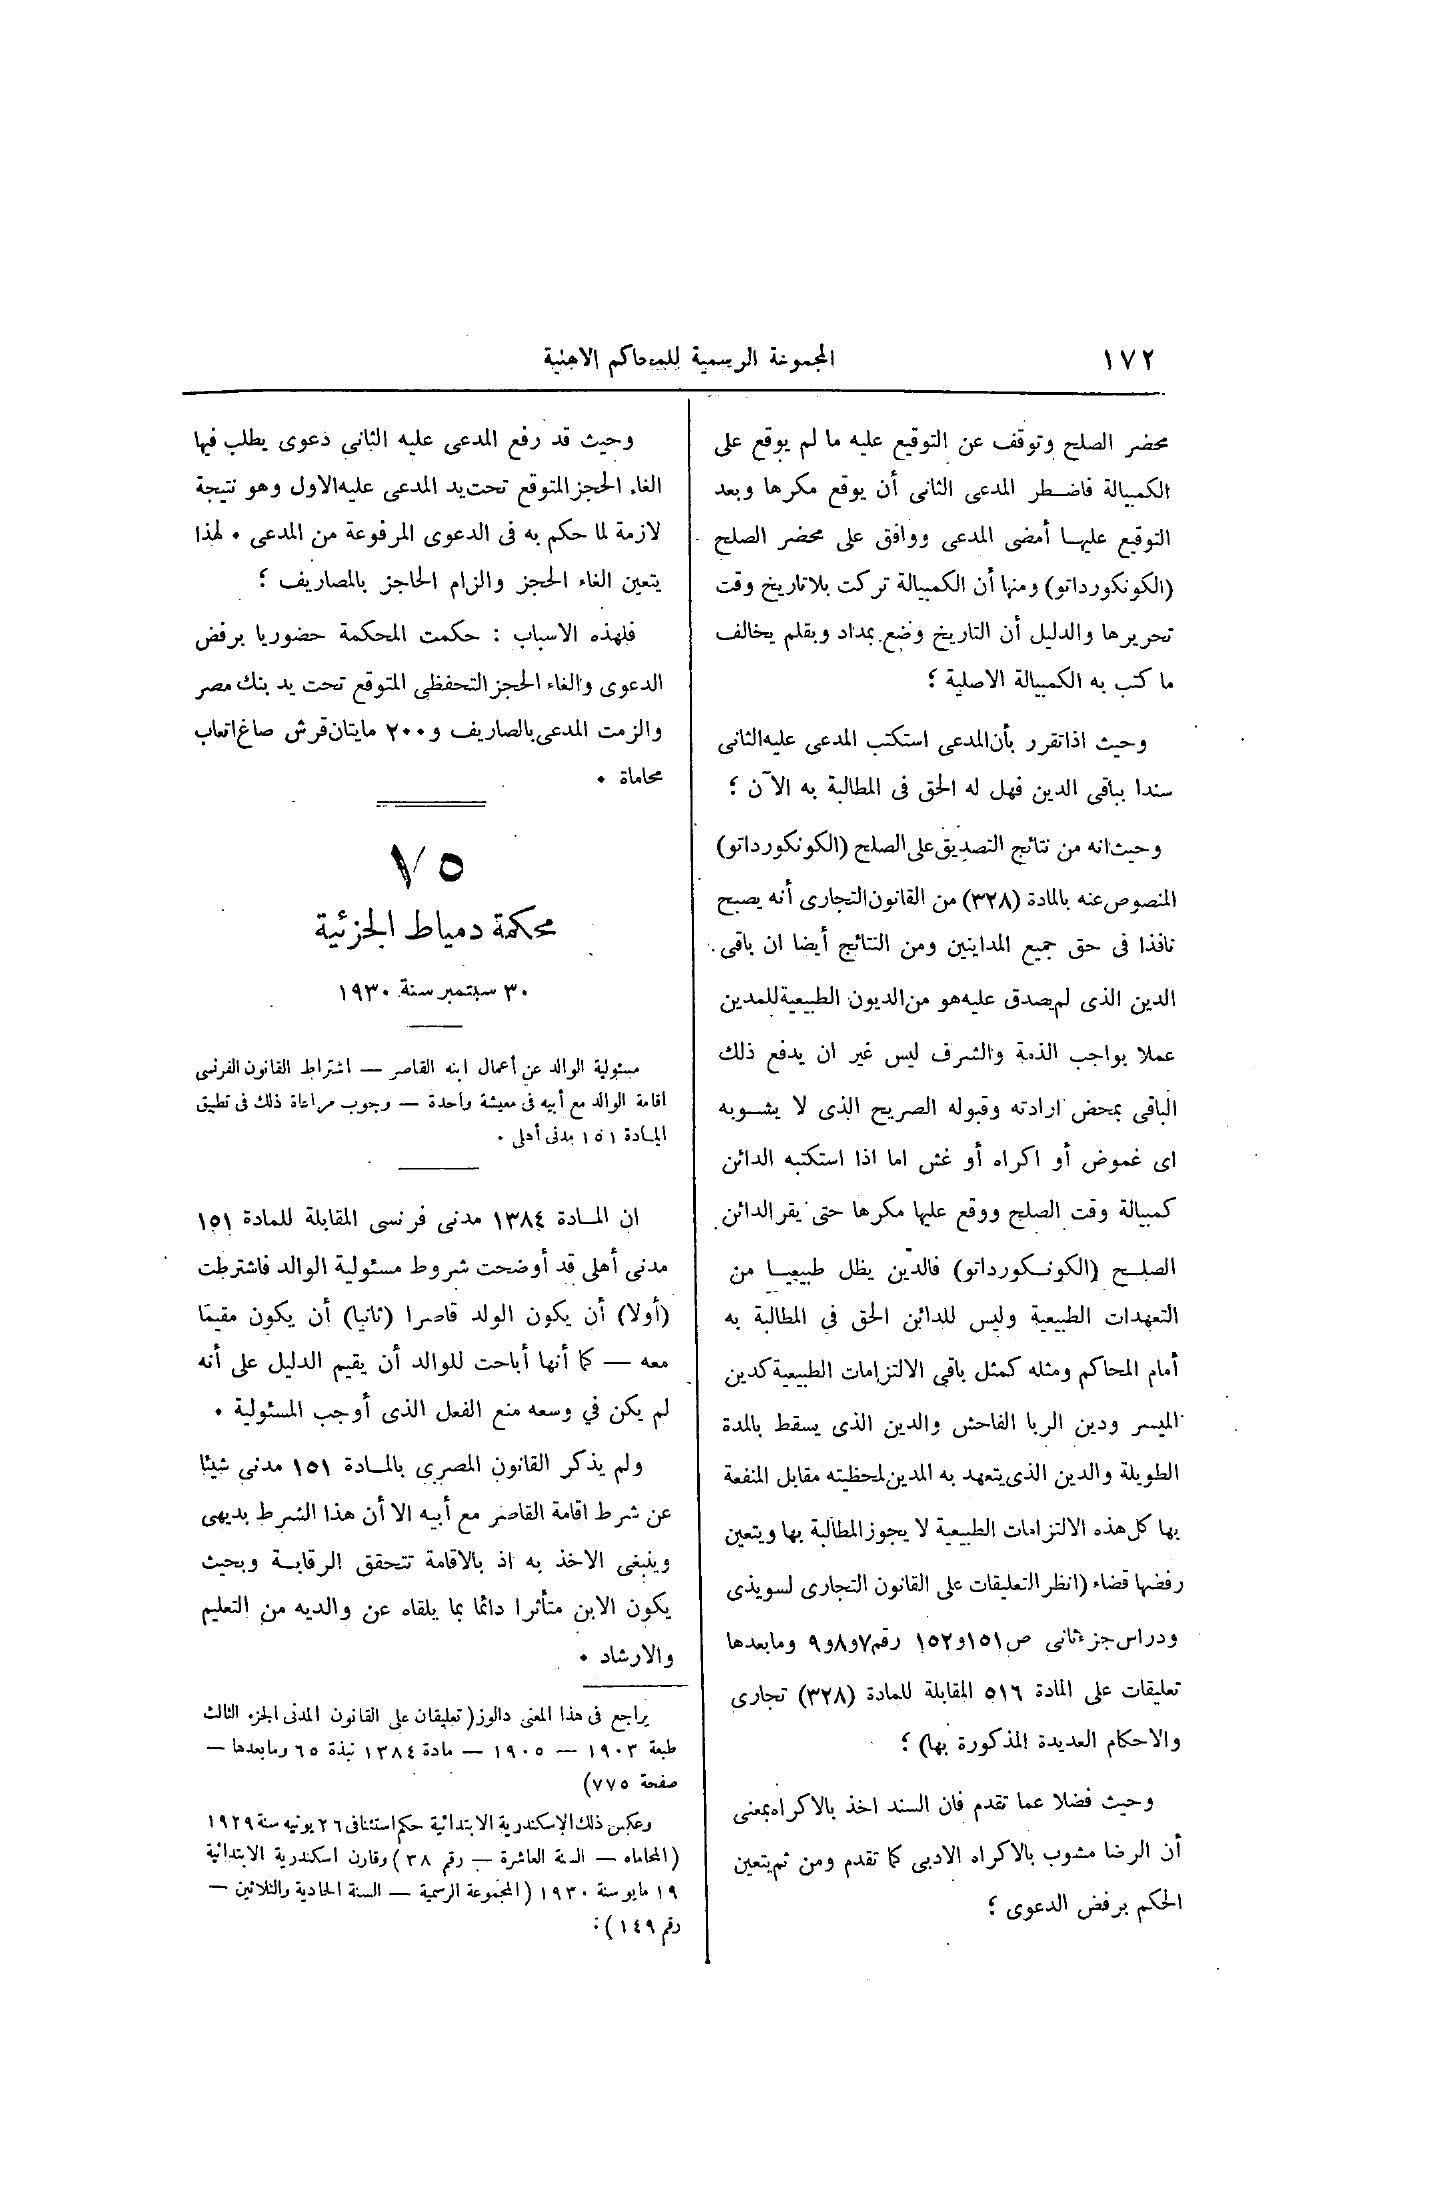 ١٧٢
المجموعة الرسمية للمحاكم الاهلية
محضر الصلح وتوقف عن التوقيع عليه ما لم يوقع على
الكمبيالة فاضطر المدعى الثانى أن يوقع مكرها وبعد
التوقيع عليها أمضى المدعى ووافق على محضر الصلح
(الكونكورداتو) ومنها أن الكمبيالة تركت بلا تاريخ وقت
تحريرها والدليل أن التاريخ وضع بمداد وبقلم يخالف
ما كتب به الكمبيالة الاصلية ؛
وحيث اذا تقرر بأن المدعى استكتب المدعى عليه الثانى
سندا بباقى الدين فهل له الحق فى المطالبة به الآن ؛
وحيث انه من نتائج التصديق على الصلح (الكونكورداتو)
المنصوص عنه بالمادة (٣٢٨) من القانون التجارى أنه يصبح
نافذا فى حق جميع المداينين ومن النتائج أيضا ان باقى
الدين الذى لم يصدق عليه هو من الديون الطبيعية للمدين
عملا بواجب الذمة والشرف ليس غير ان يدفع ذلك
الباقى بمحض ارادته وقبوله الصريح الذى لا يشوبه
اى غموض أو اكراه أو غش اما اذا استكتبه الدائن
كمبيالة وقت الصلح ووقع عليها مكرها حتى يقر الدائن
الصلح (الكونكورداتو) فالدّين يظل طبيعيا من
التعهدات الطبيعية وليس للدائن الحق فى المطالبة به
أمام المحاكم ومثله كمثل باقى الالتزامات الطبيعية كدين
الميسر ودين الربا الفاحش والدين الذى يسقط بالمدة
الطويلة والدين الذى يتعهد به المدين لمحظيته مقابل المنفعة
بها كل هذه الالتزامات الطبيعية لا يجوز المطالبة بها ويتعين
رفضها قضاء (انظر التعليقات على القانون التجارى لسويذى
ودراس جزء ثانى ص ١٥١ و١٥٢ رقم ٧ و٨ و٩ وما بعدها
تعليقات على المادة ٥١٦ المقابلة للمادة (٣٢٨) تجارى
والاحكام العديدة المذكورة بها) ؛
وحيث فضلا عما تقدم فان السند اخذ بالاكراه بمعنى
أن الرضا مشوب بالاكراه الادبى كما تقدم ومن ثم يتعين
الحكم برفض الدعوى ؛
وحيث قد رفع المدعى عليه الثانى دعوى يطلب فيها
الغاء الحجز المتوقع تحت يد المدعى عليه الاول وهو نتيجة
لازمة لما حكم به فى الدعوى المرفوعة من المدعى . لهذا
يتعين الغاء الحجز والزام الحاجز بالمصاريف ؛
فلهذه الاسباب : حكمت المحكمة حضوريا برفض
الدعوى والغاء الحجز التحفظى المتوقع تحت يد بنك مصر
والزمت المدعى بالصاريف و ٢٠٠ مايتان قرش صاغ اتعاب
محاماة .
٧٥
محكمة دمياط الجزئية
٣٠ سبتمبر سنة ١٩٣٠
مسئولية الوالد عن أعمال ابنه القاصر — اشتراط القانون الفرنسى
اقامة الوالد مع أبيه فى معيشة واحدة — وجوب مراعاة ذلك فى تطبيق
المادة ١٥١ مدنى أهلى .
ان المادة ١٣٨٤ مدنى فرنسى المقابلة للمادة ١٥١
مدنى أهلى قد أوضحت شروط مسئولية الوالد فاشترطت
(أولا) أن يكون الولد قاصرا (ثانيا) أن يكون مقيما
معه — كما أنها أباحت للوالد أن يقيم الدليل على أنه
لم يكن في وسعه منع الفعل الذى أوجب المسئولية .
ولم يذكر القانون المصرى بالمادة ١٥١ مدنى شيئا
عن شرط اقامة القاصر مع أبيه الا أن هذا الشرط بديهى
وينبغى الاخذ به اذ بالاقامة تتحقق الرقابة وبحيث
يكون الابن متأثرا دائما بما يلقاه عن والديه من التعليم
والارشاد .
يراجع فى هذا المعنى دالوز (تعليقات على القانون المدنى الجزء الثالث
طبعة ١٩٠٣ — ١٩٠٥ — مادة ١٣٨٤ نبذة ٦٥ وما بعدها —
صفحة ٧٧٥)
وعكس ذلك الإسكندرية الابتدائية حكم استئنافى ٢٦ يونيه سنة ١٩٢٩
(المحاماه — السنة العاشرة — رقم ٣٨) وقارن اسكندرية الابتدائية
١٩ مايو سنة ١٩٣٠ (المجموعة الرسمية — السنة الحادية والثلاثين —
رقم ١٤٩) :